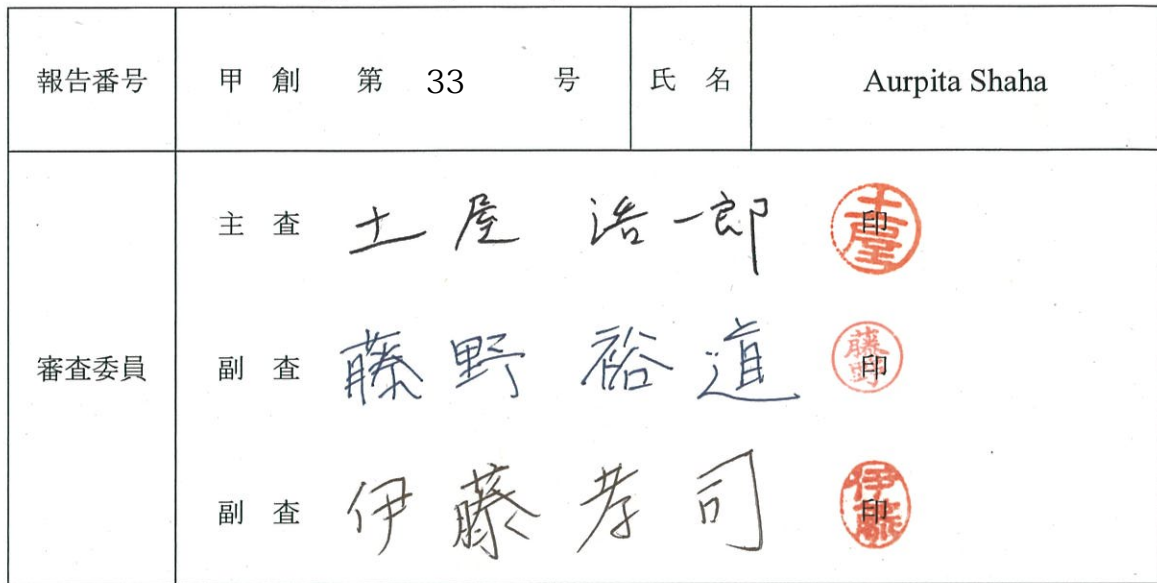 報告番号 甲 創 第 33 号 氏 名 Aurpita Shaha
主 査 土屋 浩一郎 印 土屋
審査委員 副 査 藤野 裕道 印 藤野
副 査 伊藤 孝司 印 伊藤